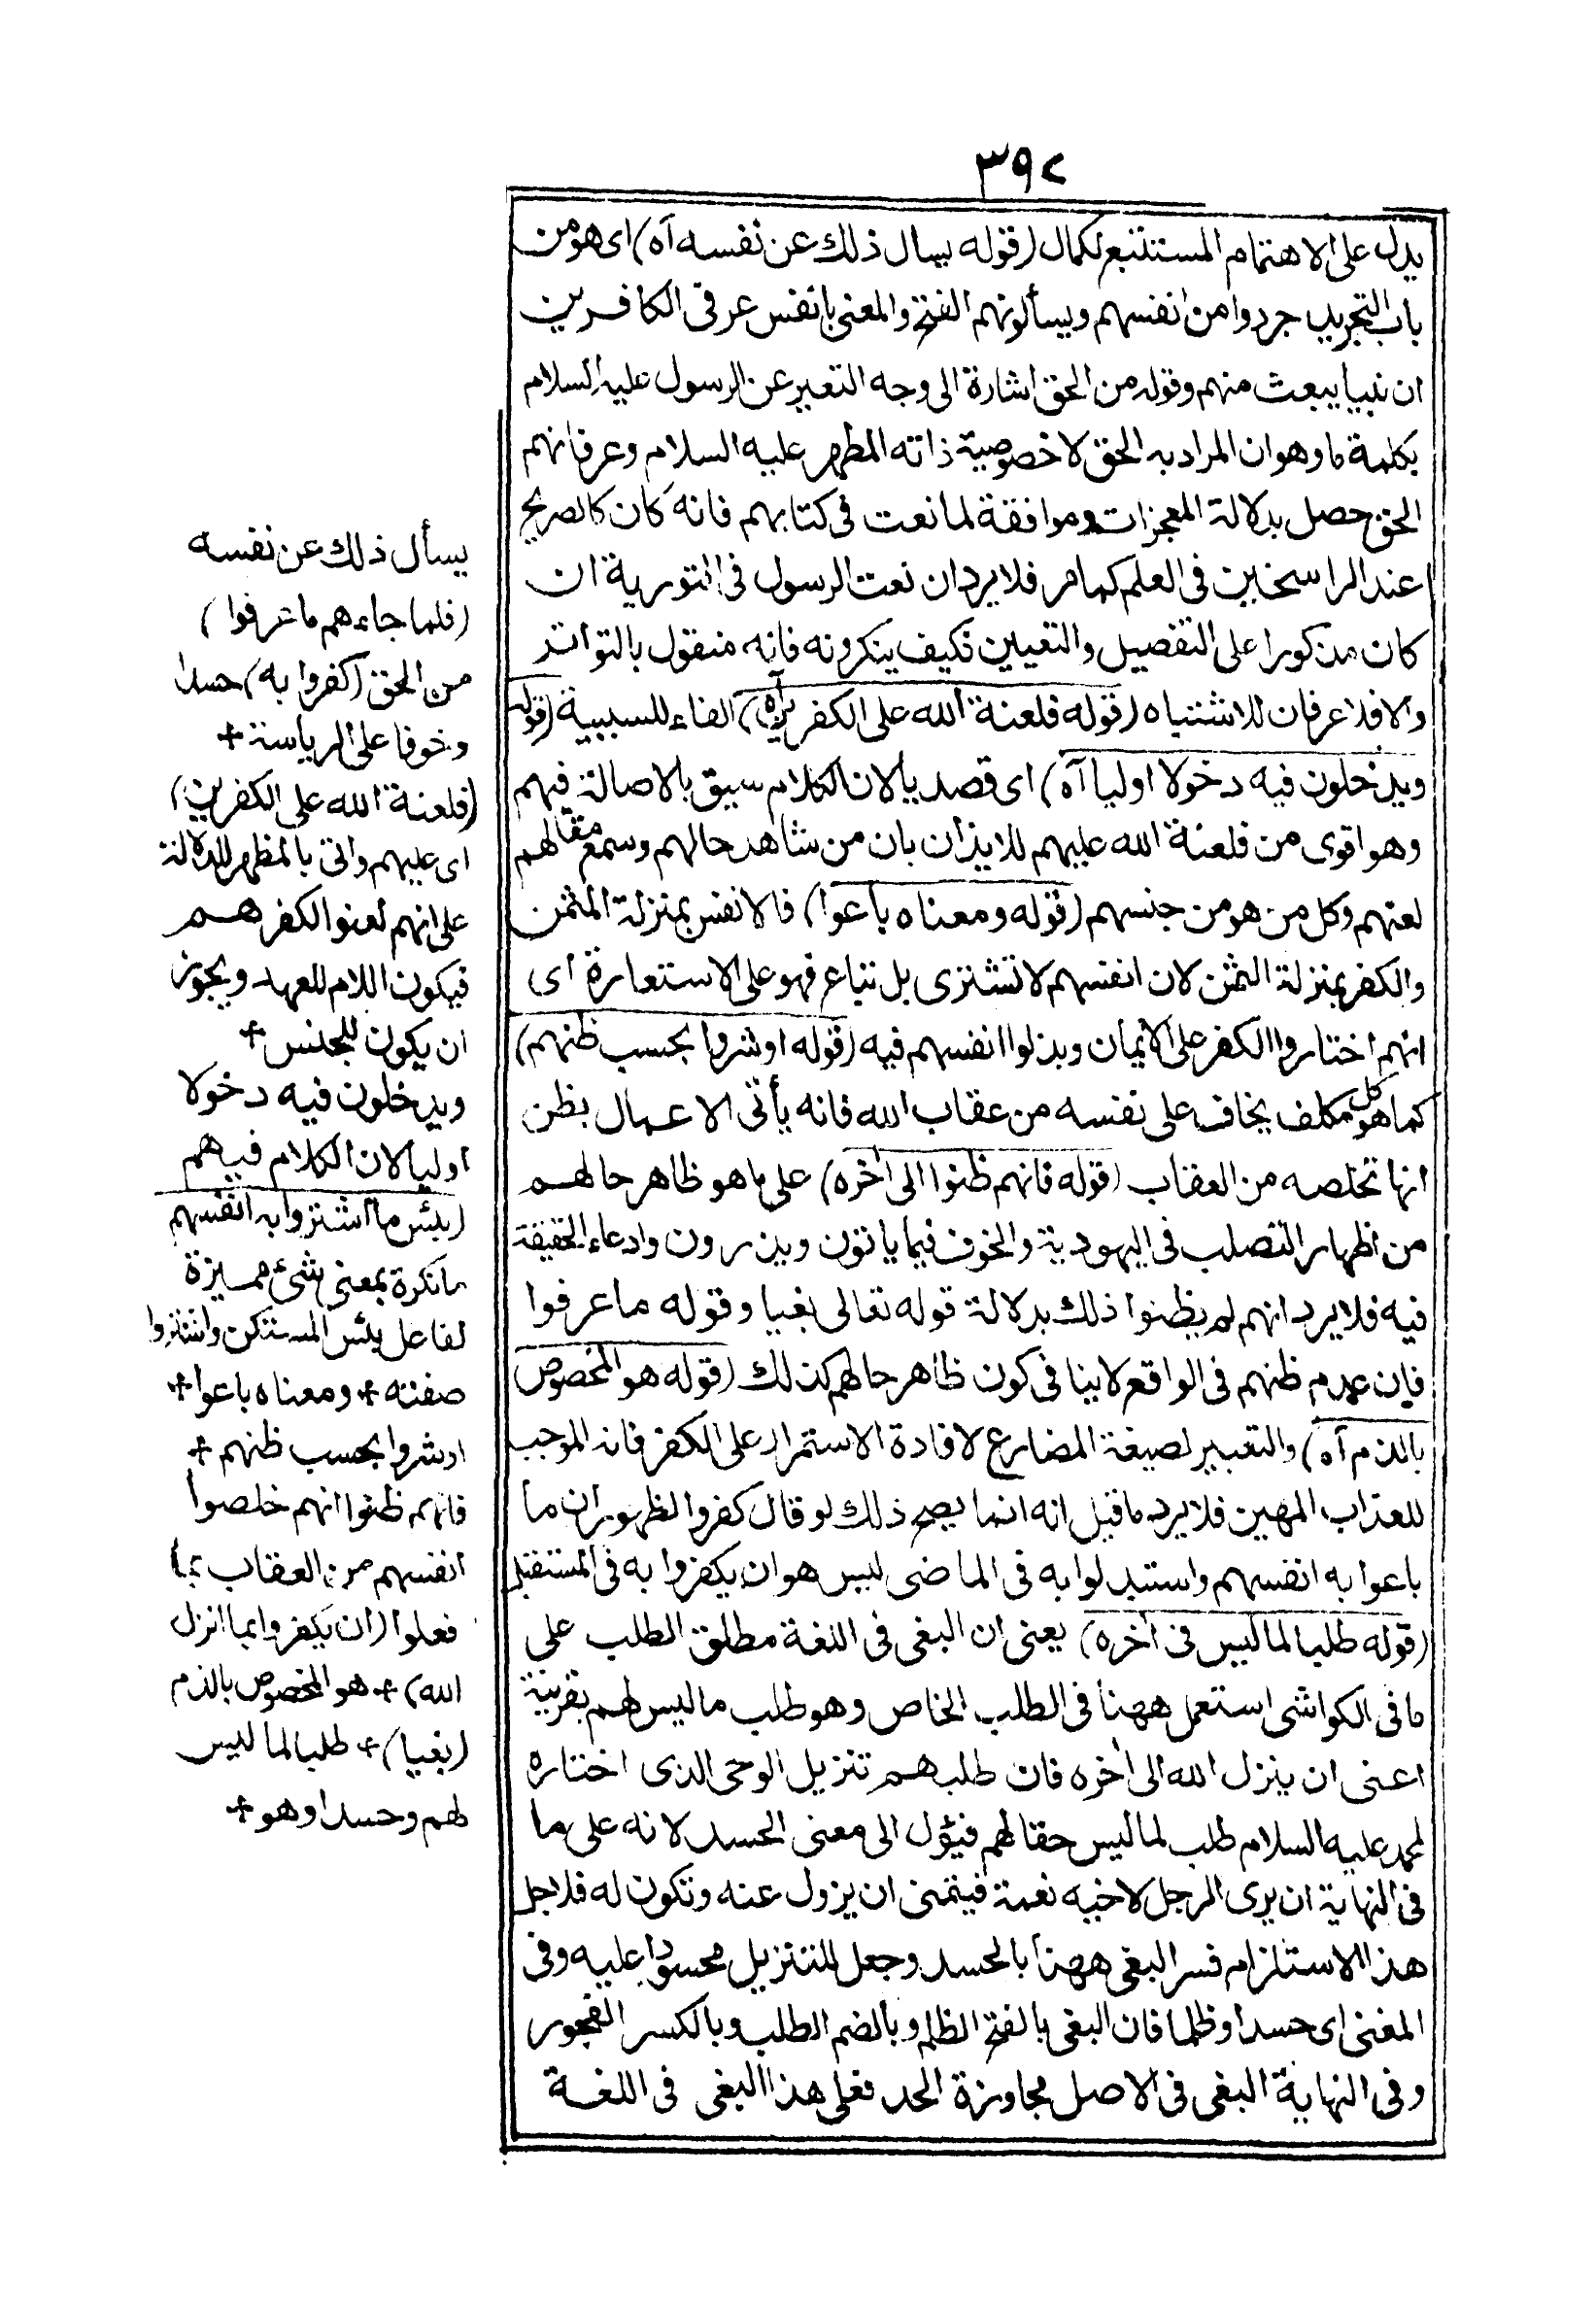 ٣٩٢
يدل على الاهتمام المستتبع لكمال (قوله يسال ذلك عن نفسه آه) اى هو من
باب التجريد جردوا من انفسهم ويسألونهم الفتح والمعنى يا نفس عرفى الكافرين
ان نبيا يبعث منهم وقوله من الحق اشارة الى وجه التعبير عن الرسول عليه السلام
بكلمة ما وهو ان المراد به الحق لا خصوصية ذاته المطهر عليه السلام وعرفانهم
الحق حصل بدلالة المعجزات وموافقة لما نعت فى كتابهم فانه كان كالصريح
عند الراسخين فى العلم كما مر فلا يرد ان نعت الرسول فى التورية ان
كان مذكورا على التفصيل والتعيين فكيف ينكرونه فانه منقول بالتواتر
والا فلا عرفان للاشتباه (قوله فلعنة الله على الكفرين آه) الفاء للسببية (قوله
ويدخلون فيه دخولا اوليا آه) اى قصديا لان الكلام سيق بالاصالة فيهم
وهو اقوى من فلعنة الله عليهم للايذان بان من شاهد حالهم وسمع مقالهم
لعنهم وكل من هو من جنسهم (قوله ومعناه باعوا) فالانفس بمنزلة المثمن
والكفر بمنزلة الثمن لان انفسهم لا تشترى بل تباع فهو على الاستعارة اى
انهم اختاروا الكفر على الايمان وبذلوا انفسهم فيه (قوله او شروا بحسب ظنهم)
كما هو كل مكلف يخاف على نفسه من عقاب الله فانه يأتى الاعمال بظن
انها تخلصه من العقاب (قوله فانهم ظنوا الى اخره) على ما هو ظاهر حالهم
من اظهار التصلب فى اليهودية والخوف فيما ياتون ويذرون وادعاء الحقيقة
فيه فلا يرد انهم لم يظنوا ذلك بدلالة قوله تعالى بغيا وقوله ما عرفوا
فان عدم ظنهم فى الواقع لا ينافى كون ظاهر حالهم كذلك (قوله هو المخصوص
بالذم آه) والتعبير لصيغة المضارع لافادة الاستمرار على الكفر فانه الموجب
للعذاب المهين فلا يرد ما قيل انه انما يصح ذلك لو قال كفروا لظهور ان ما
باعوا به انفسهم واستبدلوا به فى الماضى ليس هو ان يكفروا به فى المستقبل
(قوله طلبا لما ليس فى اخره) يعنى ان البغى فى اللغة مطلق الطلب على
ما فى الكواشى استعمل ههنا فى الطلب الخاص وهو طلب ما ليس لهم بقرينة
اعنى ان ينزل الله الى اخره فان طلبهم تنزيل الوحى الذى اختاره
لمحمد عليه السلام طلب لما ليس حقا لهم فيؤل الى معنى الحسد لانه على ما
فى النهاية ان يرى الرجل لاخيه نعمة فيتمنى ان يزول عنه وتكون له فلاجل
هذا الاستلزام فسر البغى ههنا بالحسد وجعل للتنزيل محسودا عليه وفى
المغنى اى حسدا وظلما فان البغى بالفتح الظلم وبالضم الطلب وبالكسر الفجور
وفى النهاية البغى فى الاصل مجاوزة الحد فعلى هذا البغى فى اللغة
يسأل ذلك عن نفسه
(فلما جاءهم ما عرفوا)
من الحق (كفروا به) حسدا
وخوفا على الرياسة +
(فلعنة الله على الكفرين)
اى عليهم واتى بالمظهر للدلالة
على انهم لعنوا لكفرهم
فيكون اللام للعهد ويجوز
ان يكون للجنس +
ويدخلون فيه دخولا
اوليا لان الكلام فيهم
(بئس ما اشتروا به انفسهم
ما نكرة بمعنى شئ مميزة
لفاعل بئس المستكن واشتروا
صفته + ومعناه باعوا +
او شروا بحسب ظنهم +
فانهم ظنوا انهم خلصوا
انفسهم من العقاب بما
فعلوا (ان يكفروا بما انزل
الله) + هو المخصوص بالذم
(بغيا) + طلبا لما ليس
لهم وحسدا وهو +